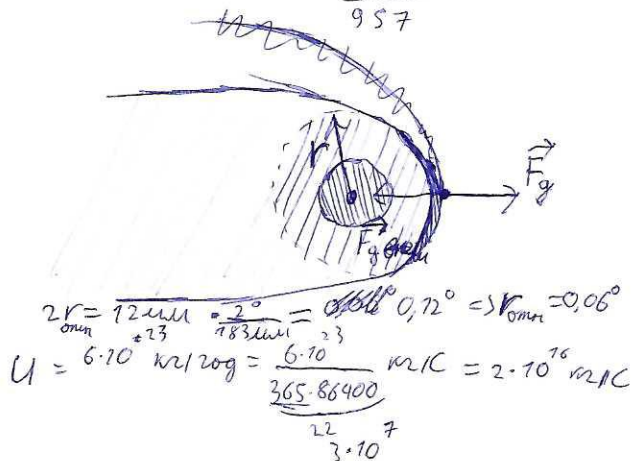 957
r
F_g
F_g
2r_отн = 12 мм · 2°/183мм = 0,12° => r_отн = 0,06°
U = 6·10^23 кг/год = 6·10^23 / 365·86400 кг/с = 2·10^16 кг/с
22 3·10^7